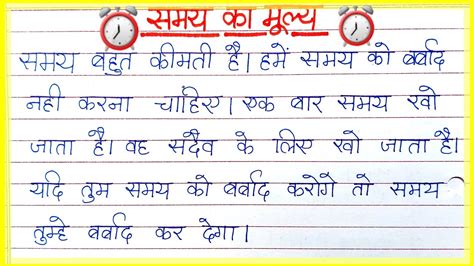 समय का मूल्य
समय बहुत कीमती है। हमें समय को बर्बाद
नही करना चाहिए। एक बार समय खो
जाता है। वह सदैव के लिए खो जाता है।
यदि तुम समय को बर्बाद करोगे तो समय
तुम्हे बर्बाद कर देगा।